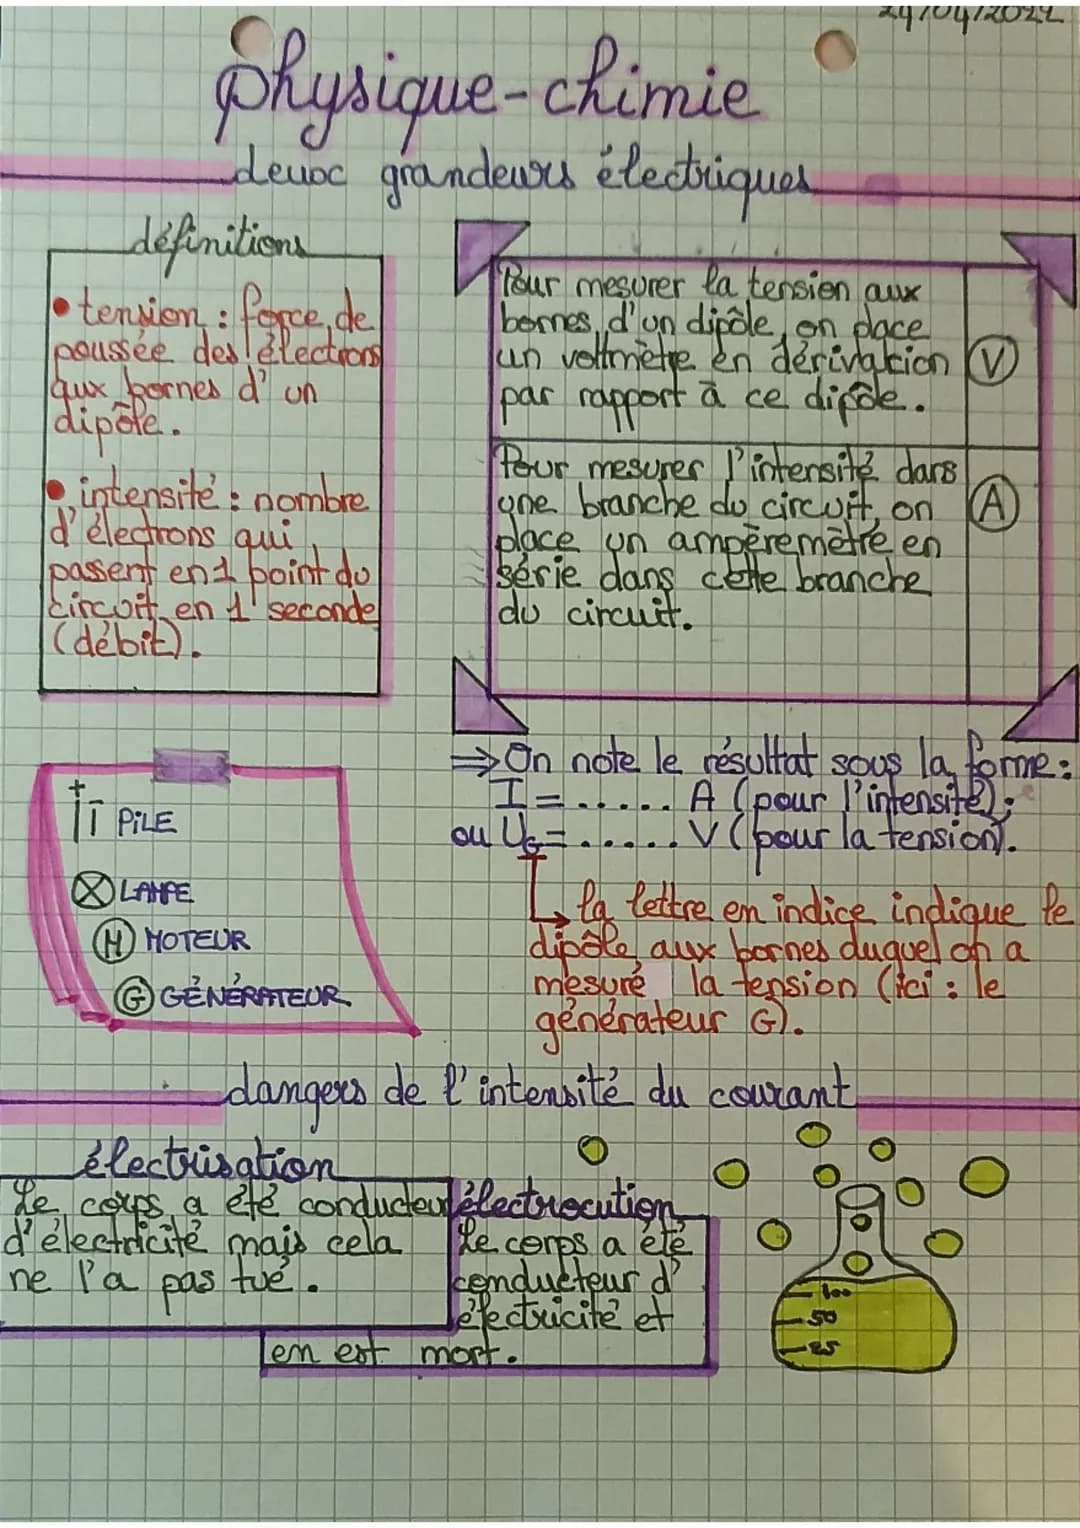 24/04/2022
Physique-chimie
deux grandeurs électriques
définitions
• tension : force de
poussée des électrons
aux bornes d'un
dipôle.
• intensité : nombre
d'électrons qui
passent en 1 point du
circuit en 1 seconde
(débit).
Pour mesurer la tension aux
bornes d'un dipôle, on place
un voltmètre en dérivation
par rapport à ce dipôle.
V
Pour mesurer l'intensité dans
une branche du circuit, on
place un ampèremètre en
série dans cette branche
du circuit.
A
+
- PILE
LAMPE
M MOTEUR
G GÉNÉRATEUR
⇒ On note le résultat sous la forme :
I = ..... A (pour l'intensité) ;
ou UG = ..... V (pour la tension).
la lettre en indice indique le
dipôle aux bornes duquel on a
mesuré la tension (ici : le
générateur G).
dangers de l'intensité du courant
électrisation
Le corps a été conducteur
d'électricité mais cela
ne l'a pas tué.
électrocution
Le corps a été
conducteur d'
électricité et
en est mort.
100
50
25